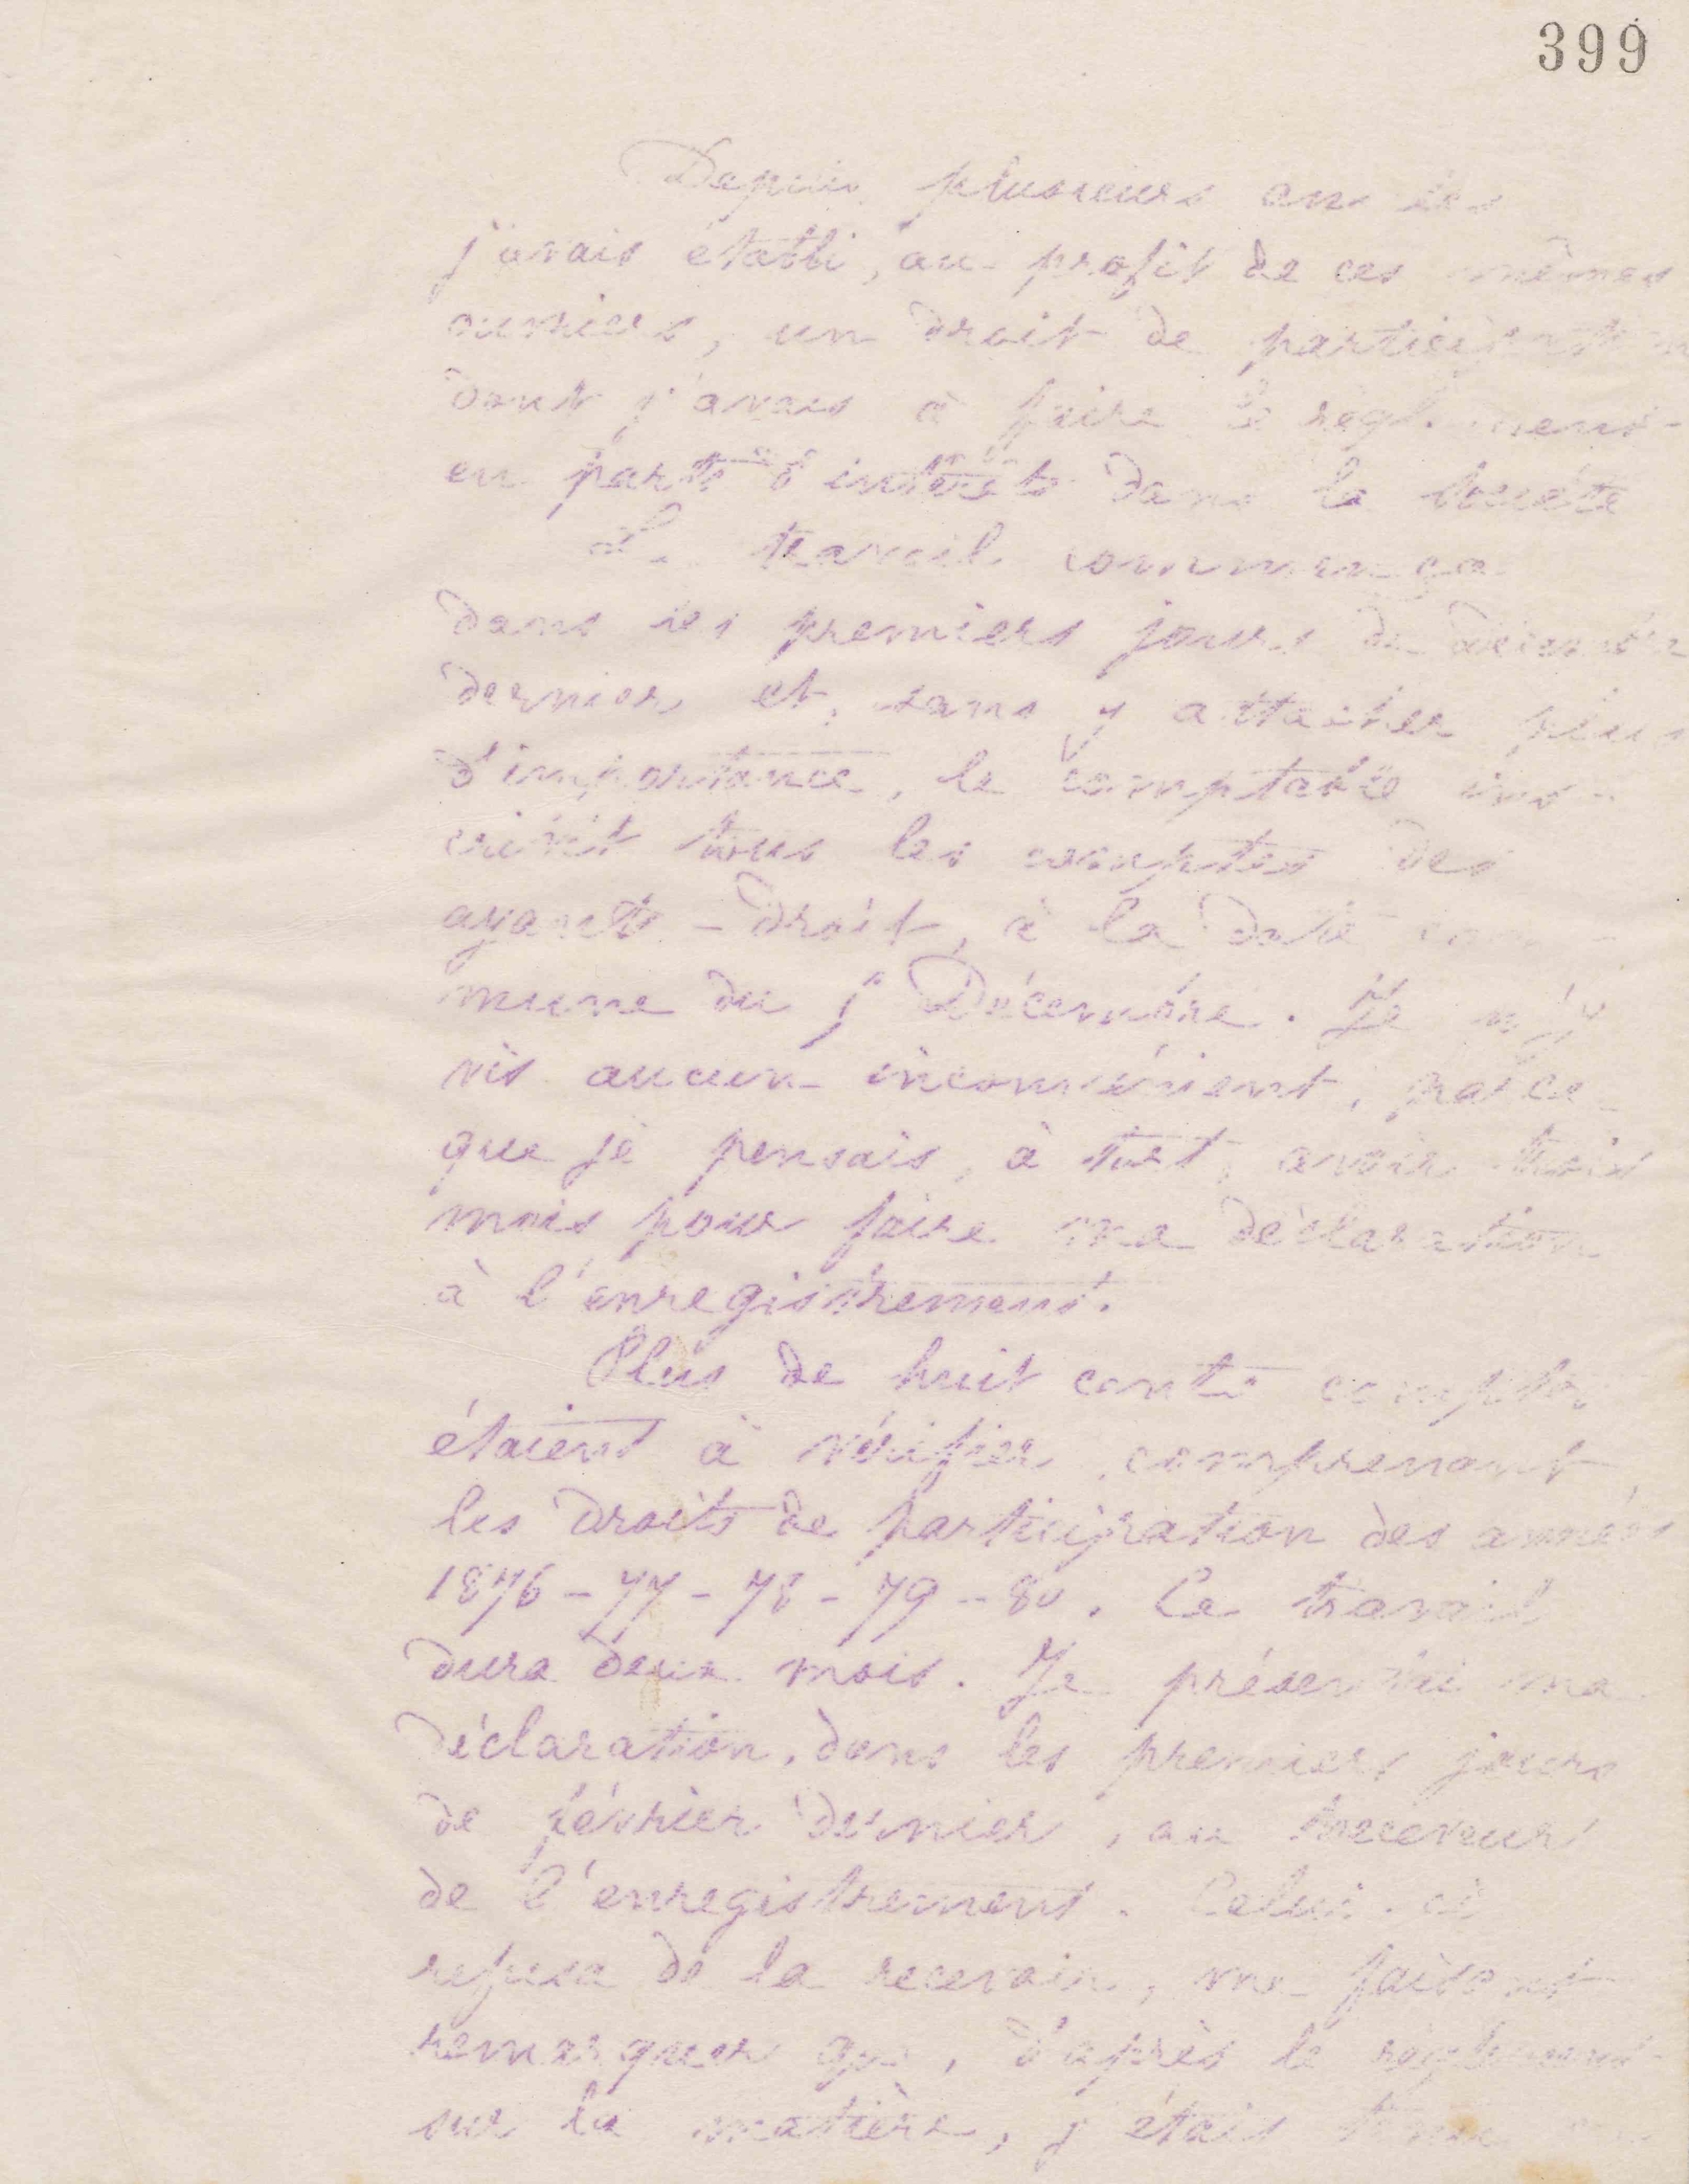 399
Depuis plusieurs années
j'avais établi, au profit de ces mêmes
ouvriers, un droit de participation
dont j'avais à faire le règlement
en parts d'intérêts dans la société
Le travail commença
dans les premiers jours de décembre
dernier et, sans y attacher plus
d'importance, le comptable ins-
crivit tous les comptes des
ayants-droit, à la date com-
mune du 1er Décembre. Je n'y
vis aucun inconvénient, parce
que je pensais, à tort, avoir trois
mois pour faire ma déclaration
à l'enregistrement.
Plus de huit cents comptes
étaient à vérifier comprenant
les droits de participation des années
1876-77-78-79-80. Ce travail
dura deux mois. Je présentai ma
déclaration, dans les premiers jours
de février dernier, au receveur
de l'enregistrement. Celui-ci
refusa de la recevoir, me faisant
remarquer que, d'après le règlement
sur la matière, j'étais tenu